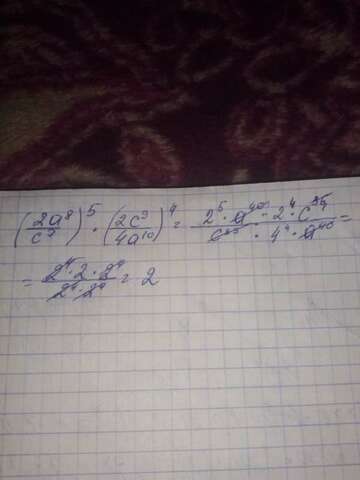 (2a⁸/c⁷)⁵ · (2c⁹/4a¹⁰)⁴ = 2⁵ · a⁴⁰ · 2⁴ · c³⁵ / c³⁵ · 4⁴ · a⁴⁰ =
= 2⁴ · 2 · 2⁴ / 2⁴ · 2⁴ = 2